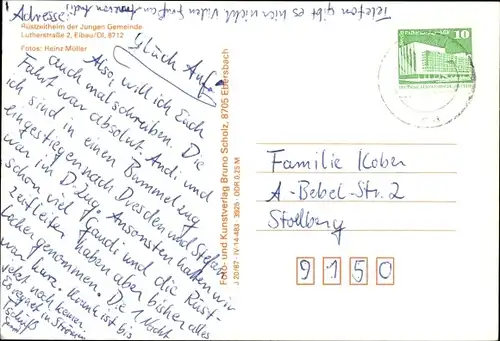 Adresse:
Rüstzeitheim der Jungen Gemeinde
Lutherstraße 2, Eibau/Ol, 8712
Fotos: Heinz Müller
Telefon gibt es hier nicht. Vielen
"Glück Auf"
Also, will ich Euch
auch mal schreiben. Die
Fahrt war absolut. Andi und
ich sind in einen Bummelzug
eingestiegen nach Dresden und Stefan
war im D-Zug. Ansonsten hatten wir
schon viel Gaudi und die Rüst-
zeitleiter haben aber bisher alles
locker genommen. Die 1. Nacht
war kurz. Krank ist bis
jetzt noch keiner.
Es regnet in Strömen
Tschüß
Foto- und Kunstverlag Bruno Scholz, 8705 Ebersbach
J 20/87 · IV-14-483 · 3926 · DDR 0,25 M
10
Familie Kober
A-Bebel-Str. 2
Stollberg
9150